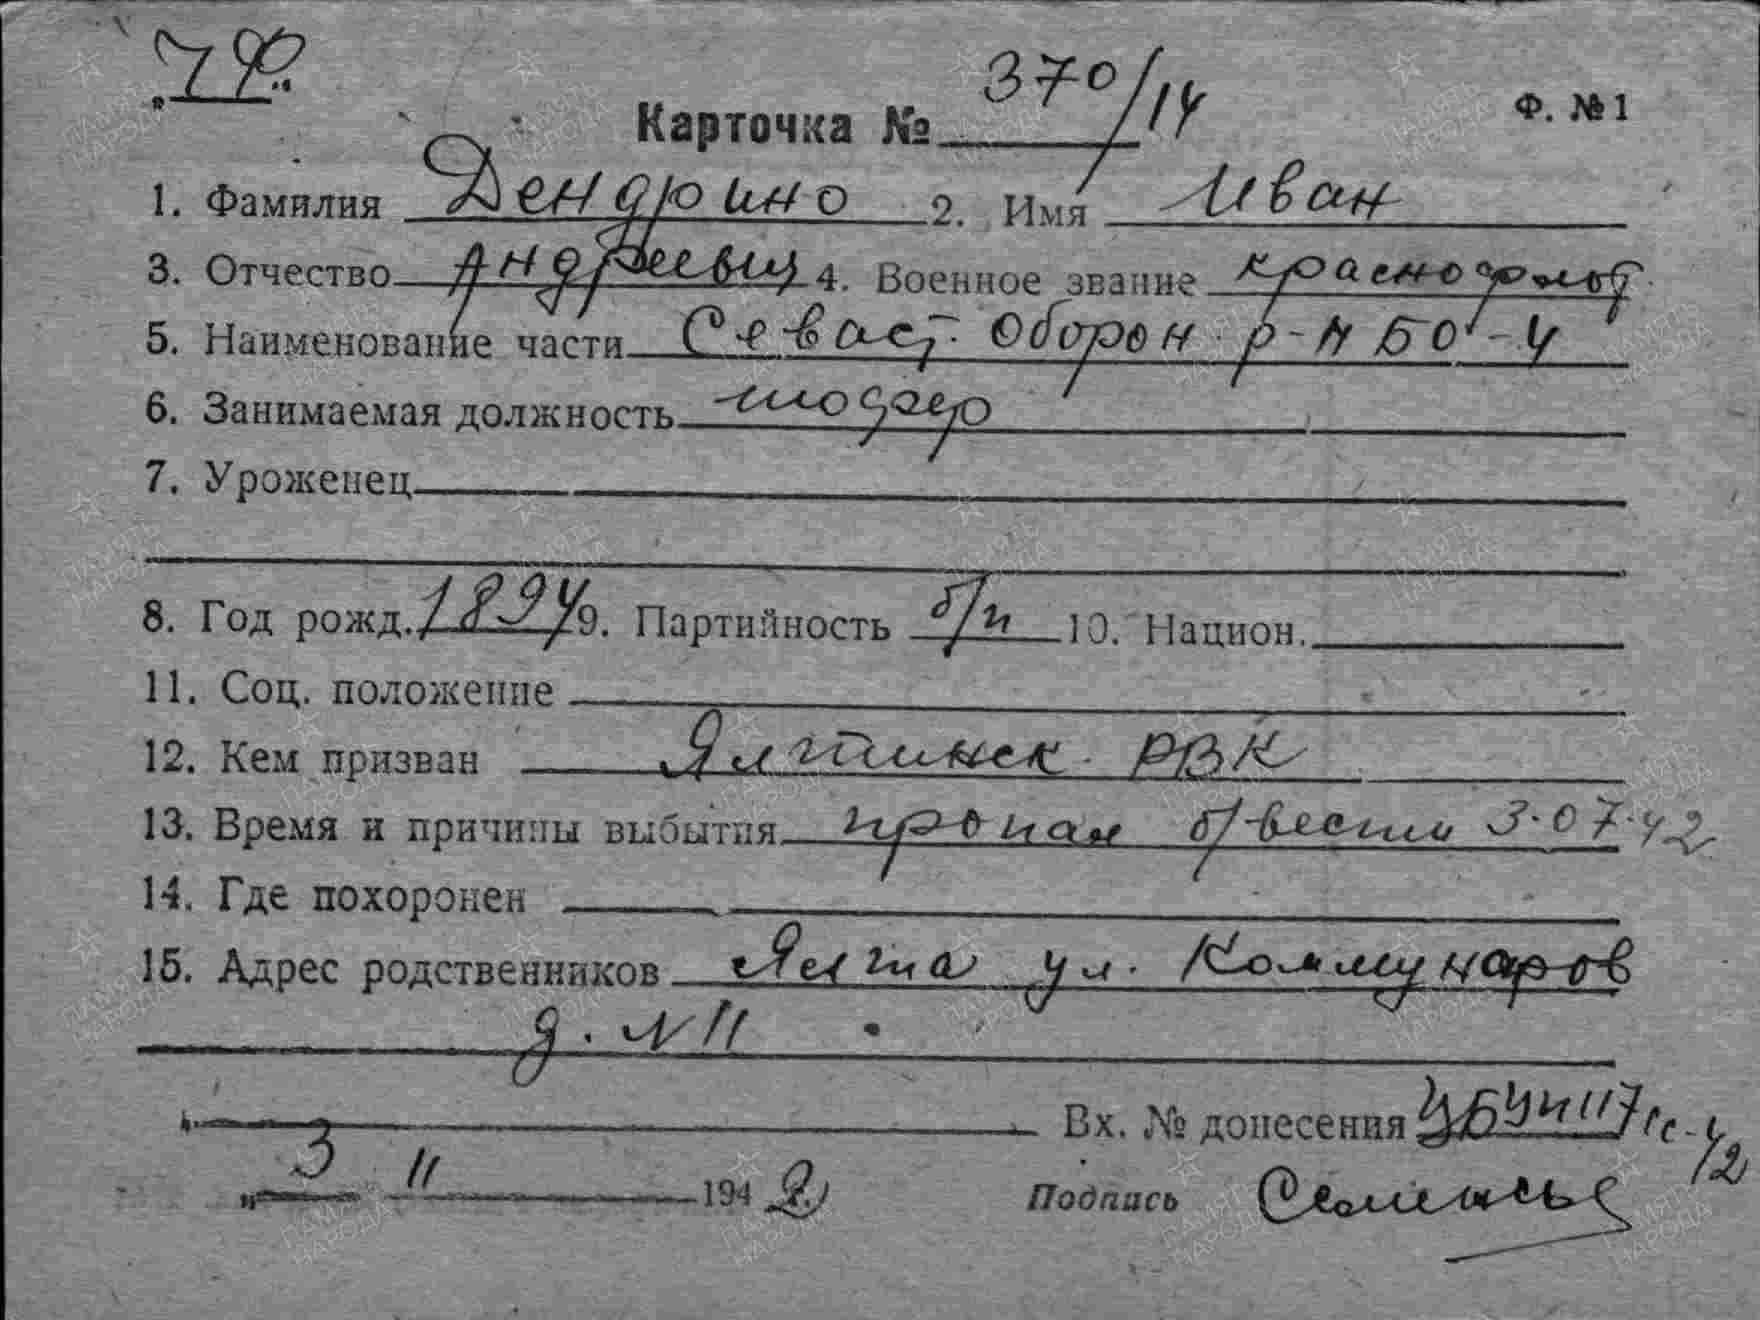 "ЧФ."
Карточка № 370/14 Ф. № 1
1. Фамилия Дендрино 2. Имя Иван
3. Отчество Андреевич 4. Военное звание краснофлот
5. Наименование части Севаст. Оборон р-н БО-4
6. Занимаемая должность
7. Уроженец
8. Год рожд. 1894 9. Партийность б/п 10. Национ.
11. Соц. положение
12. Кем призван Ялтинск. РВК
13. Время и причины выбытия пропал б/вести 3.07.42
14. Где похоронен
15. Адрес родственников Ялта ул. Коммунаров
д. № 11
Вх. № донесения
„ 3 11 1942 Подпись
ПАМЯТЬ НАРОДА